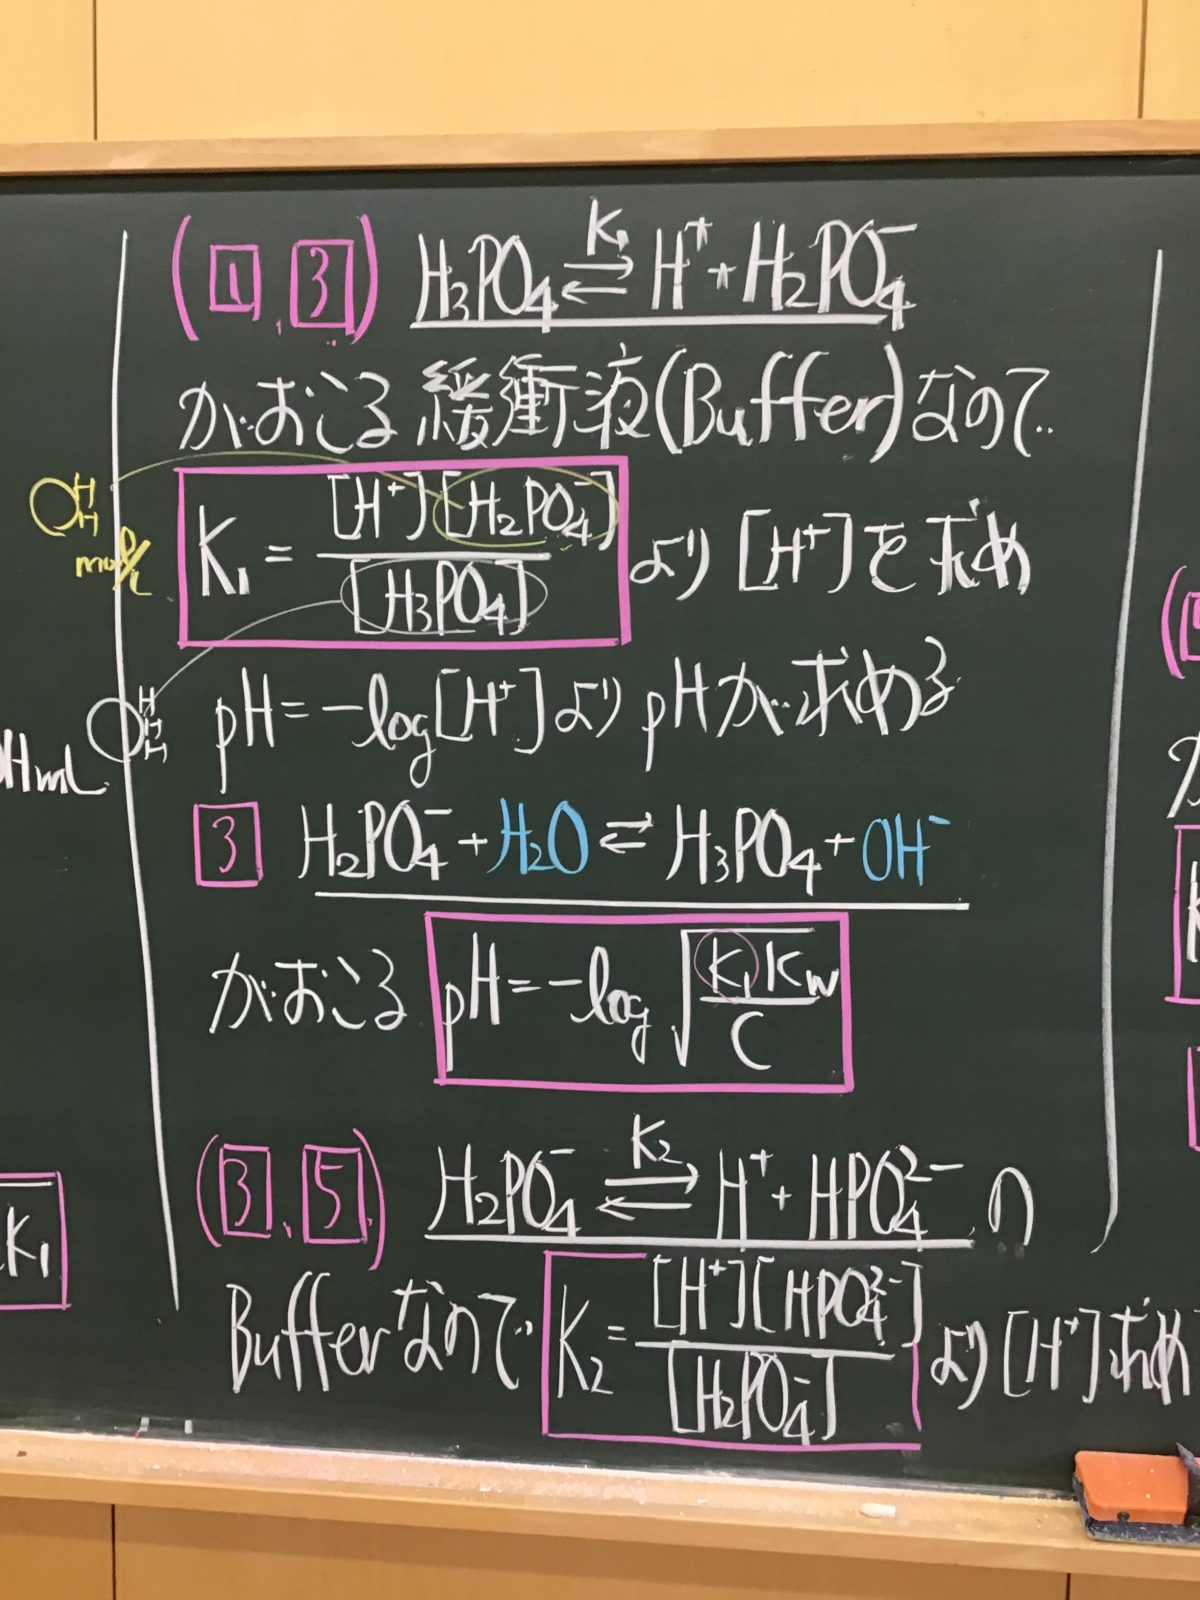 (1, 3) H₃PO₄ ⇄ H⁺ + H₂PO₄⁻
K₁
がおこる 緩衝液(Buffer)なので
K₁ = [H⁺][H₂PO₄⁻] / [H₃PO₄] より [H⁺]を求め
H
H
mol/L
pH = -log[H⁺]より pHが求める
H
H
H
3 H₂PO₄⁻ + H₂O ⇄ H₃PO₄ + OH⁻
がおこる pH = -log√(K₁Kw / C)
(3, 5) H₂PO₄⁻ ⇄ H⁺ + HPO₄²⁻ の
K₂
Bufferなので K₂ = [H⁺][HPO₄²⁻] / [H₂PO₄⁻] より [H⁺]求め
mL
K₁